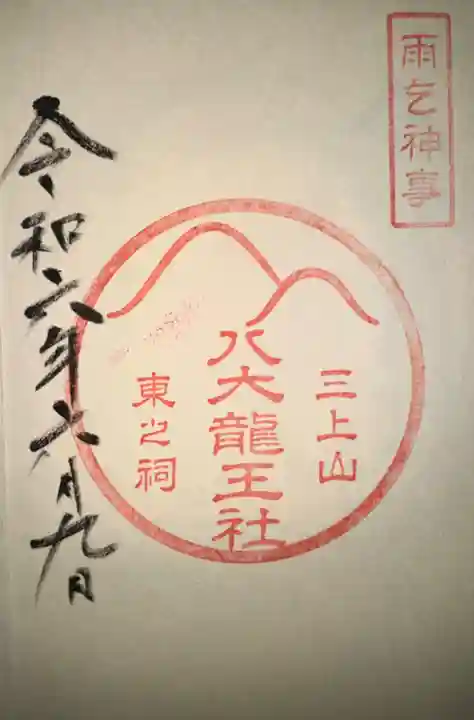 雨乞神事
三上山
八大龍王社
東之祠
令和六年六月九日